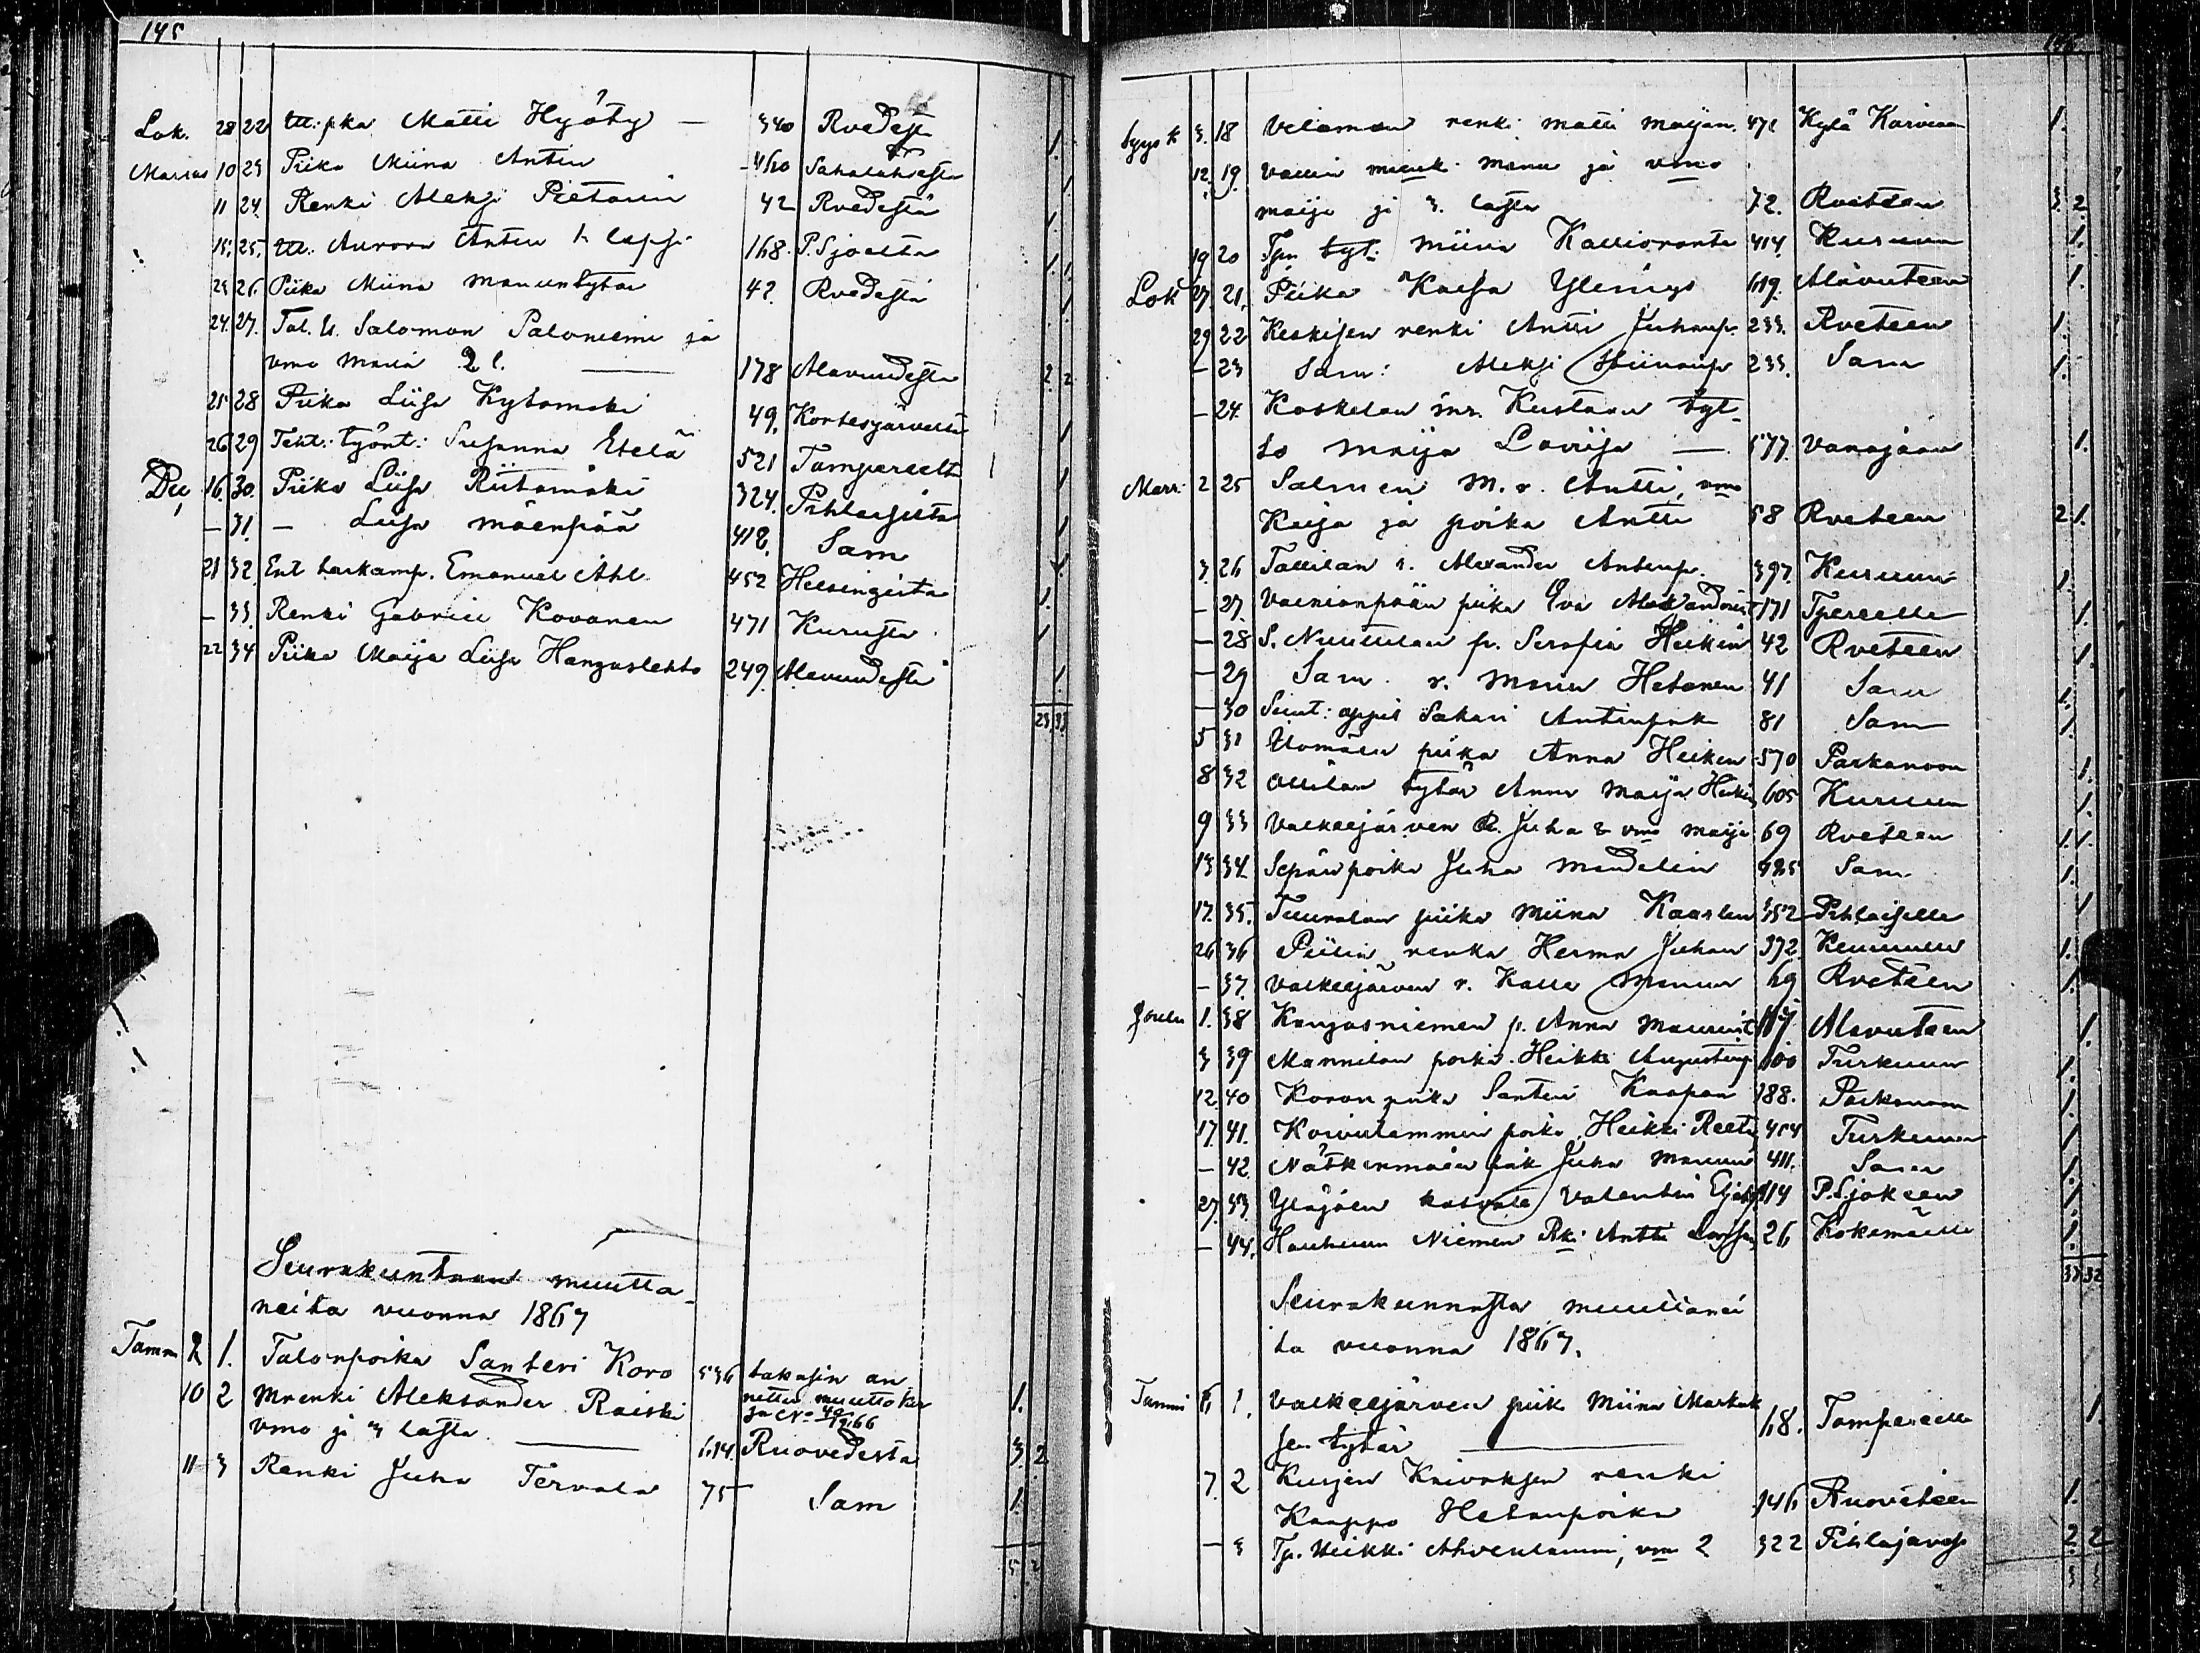 145
Lok. 28 22 itl: pka Matti Hyöty — 340 Rvedestä 1.
Marras 10 23 Piika Miina Antin 460 Sahalahdesta 1
11 24. Renki Aleksi Pietarin 42 Rvedestä 1.
15. 25. itl. Aurora Antin 1 lapsi 168. P.Sjoelta 1. 1.
23 26. Piika Miina Manuntytar 42. Rvedestä 1
24. 27. Tal. is. Salomon Paloniemi ja
vmo Maria 2 l. — 178 Alavuudesta 2. 2
25 28 Piika Liisa Kytomaki 49. Kortesjärveltä 1
26 29 Teht: työnt: Susanna Etelä 521 Tampereelta 1
Dec, 16. 30. Piika Liisa Riitamäki 324. Pihlajista 1
— 31. — Liisa Mäenpää 412. Sam 1.
21 32 Ent. Emanuel Ahl 452 Helsingista 1.
— 33. Renki Gabriel Kovanen 471 Kurusta 1
22 34 Piika Maija Liisa Hanguslehto 249. Alavuudesta 1.
23 33
Seurakuntaan muutta-
neita vuonna 1867
Tamm 2 1. Talonpoika Santeri Koro 536 takasin an
nettu muuttokir
10 2 Mrenki Aleksander Raiski ja No 1.
vmo ja 3 lasta. — 614. Ruovedesta 3. 2
11 3 Renki Juha Tervala 75 Sam 1.
5 2
146
Syys k 3. 18 Velaman renki Matti Maijan. 471 Kylä Karviaan 1.
12. 19. Vallin Manu ja vmo
Maija ja 3. lasta 72. Rveteen 3. 2.
19 20 Tpn tyt: Miina Kallioranta 414. Kuruun 1.
Lok 27. 21. Piika Kaisa Ylinys 619. Alavuteen 1.
29 22 Keskisen renki Antti Juhanp. 233. Rveteen 1.
— 23 Sam: Aleksi 233. Sam 1.
— 24. Koskelan inr. Kustaan tyt-
tö Maija Lovisa — 577. Vanajaan 1.
Marr: 2 25 Salmen M. r. Antti, vmo
Kaija ja poika Antti 58 Rveteen 2 1.
3. 26 Tallilan r. Alexander Antinp. 397. Kuruun 1.
— 27. Vainionpään piika Eva Alexanderint 171 Tpereelle 1.
— 28 S. Nuutilan p. Serafia Heikin 42 Rveteen 1.
— 29 Sam. r. Manu Hetanen 41 Sam 1.
— 30 Suut: oppil Sakari Antinpok 81 Sam 1.
5 31 piika Anna Heiken 570 Parkanoon 1.
8 32 Ollilan tytär Anna Maija Heikin 605 Kuruun 1.
9 33 Valkeejärven R. Juha & vmo Maija 69 Rveteen 1. 1.
13 34 Sepänpoika Juha Mandelin 425 Sam 1.
17. 35. Tuuralan piika Miina Kaarlen 352 Pihlajselle 1
26 36 Piilin renki Herma Juhan 372. Keuruun 1.
— 37. Valkeejärven r. Kalle Manun 69 Rveteen 1.
Joulu 1. 38 Kangasniemen p. Anna Maurint 167 Alavuteen 1.
3 39 Mannilan poika Heikki Augustinp 100 Turkuun 1.
12. 40 Koron piika Santeri Kaapan 188. Parkanoon 1.
17. 41. Koivulammin poika Heikki Reeti 454 Turkuun 1
— 42. Juha Manun 411. Sam 1.
27. 43. Yläjoen kasvate Valentin 114 P.Sjokeen 1.
— 44. Hauhuun Niemen Rki Antti 26 Kokemäelle 1.
33 32
Seurakunnasta muuttanei
ta vuonna 1867.
Tammi 6 1. Valkeejärven piik Miina Markuk
sen tytär — 68. Tampereelle 1.
7. 2 Kurjen Kaivoksen renki
Kaappo Hetanpoika 146 Ruoveteen 1.
— 3 Tp. Heikki Ahvenlammi, vm 2 322 Pihlajaves 2 2
3 3